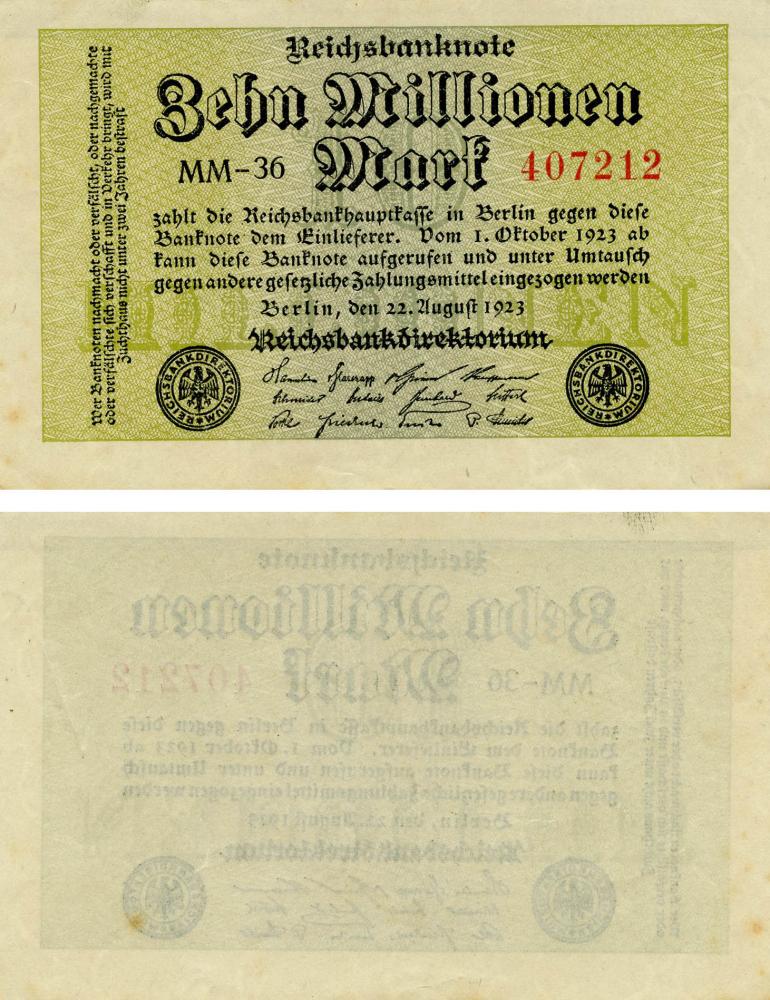 Reichsbanknote
Zehn Millionen
Mark
MM-36
407212
zahlt die Reichsbankhauptkasse in Berlin gegen diese
Banknote dem Einlieferer. Vom 1. Oktober 1923 ab
kann diese Banknote aufgerufen und unter Umtausch
gegen andere gesetzliche Zahlungsmittel eingezogen werden
Berlin, den 22. August 1923
Reichsbankdirektorium
REICHSBANKDIREKTORIUM
REICHSBANKDIREKTORIUM
Wer Banknoten nachmacht oder verfälscht, oder nachgemachte
oder verfälschte sich verschafft und in Verkehr bringt, wird mit
Zuchthaus nicht unter zwei Jahren bestraft